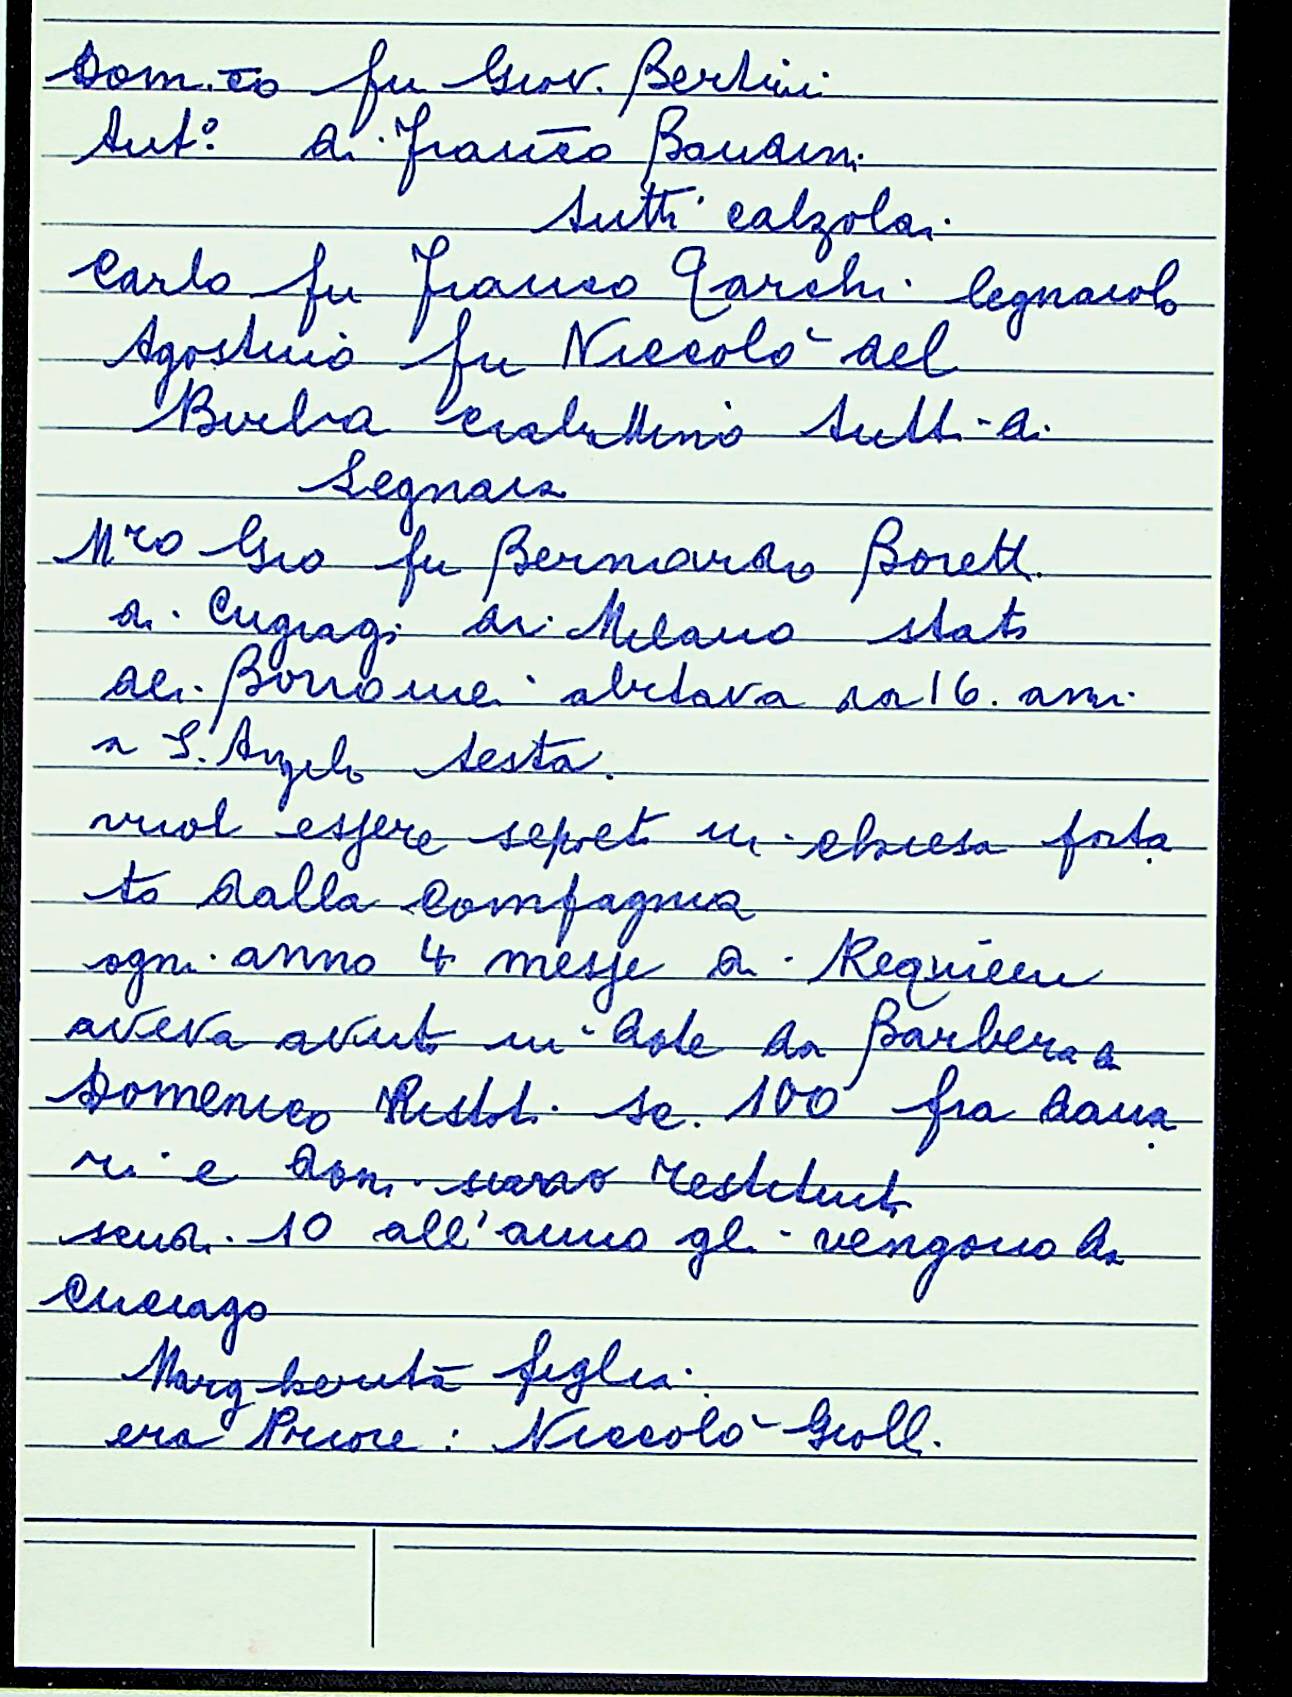 Dom.co fu Giov. Bertini
Ant.º di Franco Bandini
tutti calzolai
Carlo fu Franco Tarchi legnaiolo
Agostino fu Niccolò del
Burba ciabattino tutti di
Legnaia
Mro Gio fu Bernardo Borett.
di Cugiagi di Milano stato
dei Borromei abitava da 16. anni
a S. Angelo Testa.
vuol essere sepolt in chiesa porta
to dalla compagnia
ogni anno 4 messe di Requiem
aveva avuto in dote da Barbera di
Domenico sc. 100 fra dana
ri e doni siano restituiti
scudi 10 all'anno gli vengono da
Cuciago
Margherita figlia.
era Priore: Niccolò Grolli.